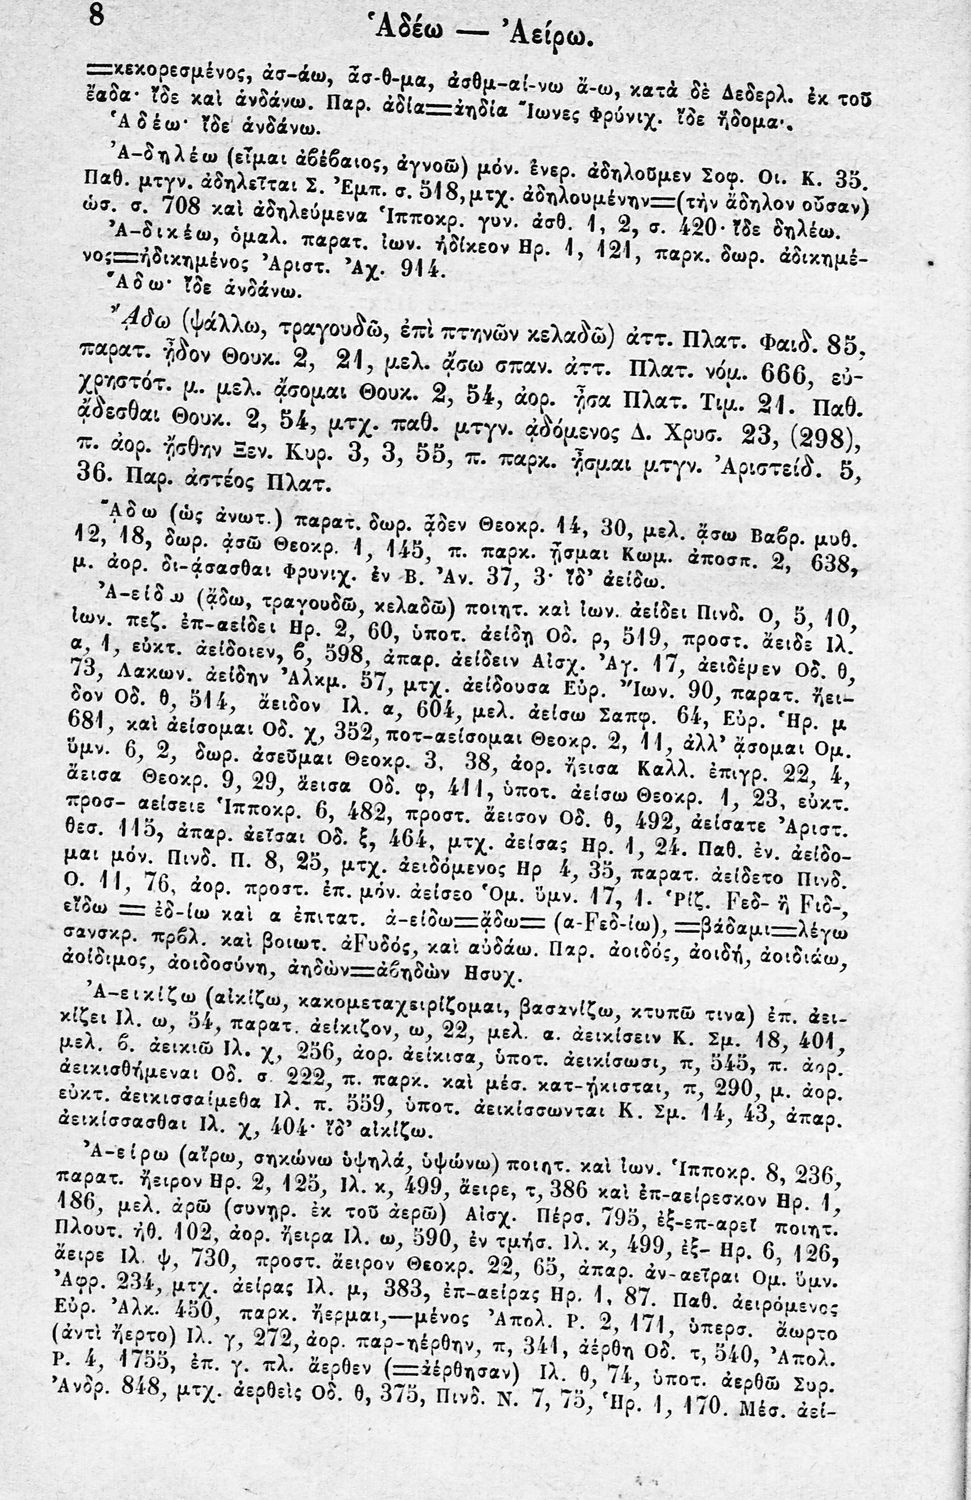 8
Ἁδέω — Ἀείρω.
=κεκορεσμένος, ἀσ-άω, ἆσ-θ-μα, ἀσθμ-αί-νω ἄ-ω, κατὰ δὲ Δεδερλ. ἐκ τοῦ
ἕαδα· ἴδε καὶ ἁνδάνω. Παρ. ἀδία=ἀηδία Ἴωνες Φρύνιχ. ἴδε ἥδομαι.
Ἁδέω· ἴδε ἁνδάνω.
Ἀ-δηλέω (εἶμαι ἀβέβαιος, ἀγνοῶ) μόν. ἐνερ. ἀδηλοῦμεν Σοφ. Οι. Κ. 35.
Παθ. μτγν. ἀδηλεῖται Σ. Ἐμπ. σ. 518, μτχ. ἀδηλουμένην=(τὴν ἄδηλον οὖσαν)
ὡσ. σ. 708 καὶ ἀδηλεύμενα Ἱπποκρ. γυν. ἀσθ. 1, 2, σ. 420· ἴδε δηλέω.
Ἀ-δικέω, ὁμαλ. παρατ. ἰων. ἠδίκεον Ηρ. 1, 121, παρκ. δωρ. ἀδικημέ-
νος=ἠδικημένος Ἀριστ. Ἀχ. 914.
Ἄδω· ἴδε ἁνδάνω.
ᾌδω (ψάλλω, τραγουδῶ, ἐπὶ πτηνῶν κελαδῶ) ἀττ. Πλατ. Φαιδ. 85,
παρατ. ᾖδον Θουκ. 2, 21, μελ. ᾄσω σπαν. ἀττ. Πλατ. νόμ. 666, εὐ-
χρηστότ. μ. μελ. ᾄσομαι Θουκ. 2, 54, ἀορ. ᾖσα Πλατ. Τιμ. 21. Παθ.
ᾄδεσθαι Θουκ. 2, 54, μτχ. παθ. μτγν. ᾀδόμενος Δ. Χρυσ. 23, (298),
π. ἀορ. ᾔσθην Ξεν. Κυρ. 3, 3, 55, π. παρκ. ᾖσμαι μτγν. Ἀριστείδ. 5,
36. Παρ. ἀστέος Πλατ.
ᾌδω (ὡς ἀνωτ.) παρατ. δωρ. ᾆδεν Θεοκρ. 14, 30, μελ. ᾄσω Βαβρ. μυθ.
12, 18, δωρ. ᾀσῶ Θεοκρ. 1, 145, π. παρκ. ᾖσμαι Κωμ. ἀποσπ. 2, 638,
μ. ἀορ. δι-ᾄσασθαι Φρυνιχ. ἐν Β. Ἀν. 37, 3· ἴδ' ἀείδω.
Ἀ-είδω (ᾄδω, τραγουδῶ, κελαδῶ) ποιητ. καὶ ἰων. ἀείδει Πινδ. Ο, 5, 10,
ἰων. πεζ. ἐπ-αείδει Ηρ. 2, 60, ὑποτ. ἀείδῃ Οδ. ρ, 519, προστ. ἄειδε Ιλ.
α, 1, εὐκτ. ἀείδοιεν, β, 598, ἀπαρ. ἀείδειν Αἰσχ. Ἀγ. 17, ἀειδέμεν Οδ. θ,
73, Λακων. ἀείδην Ἀλκμ. 57, μτχ. ἀείδουσα Εὐρ. Ἴων. 90, παρατ. ἤει-
δον Οδ. θ, 514, ἄειδον Ιλ. α, 604, μελ. ἀείσω Σαπφ. 64, Εὐρ. Ἡρ. μ
681, καὶ ἀείσομαι Οδ. χ, 352, ποτ-αείσομαι Θεοκρ. 2, 11, ἀλλ' ᾄσομαι Ομ.
ὕμν. 6, 2, δωρ. ἀσεῦμαι Θεοκρ. 3, 38, ἀορ. ἤεισα Καλλ. ἐπιγρ. 22, 4,
ἄεισα Θεοκρ. 9, 29, ἄεισα Οδ. φ, 411, ὑποτ. ἀείσω Θεοκρ. 1, 23, εὐκτ.
προσ- αείσειε Ἱπποκρ. 6, 482, προστ. ἄεισον Οδ. θ, 492, ἀείσατε Ἀριστ.
θεσ. 115, ἀπαρ. ἀεῖσαι Οδ. ξ, 464, μτχ. ἀείσας Ηρ. 1, 24. Παθ. ἐν. ἀείδο-
μαι μόν. Πινδ. Π. 8, 25, μτχ. ἀειδόμενος Ηρ 4, 35, παρατ. ἀείδετο Πινδ.
Ο. 11, 76, ἀορ. προστ. ἐπ. μόν. ἀείσεο Ὁμ. ὕμν. 17, 1. Ῥίζ. Fεδ- ἢ Fιδ-,
εἴδω = ἐδ-ίω καὶ α ἐπιτατ. ἀ-είδω=ᾄδω= (α-Fεδ-ίω), =βάδαμι=λέγω
σανσκρ. πρβλ. καὶ βοιωτ. ἀFυδός, καὶ αὐδάω. Παρ. ἀοιδός, ἀοιδή, ἀοιδιάω,
ἀοίδιμος, ἀοιδοσύνη, ἀηδὼν=ἀβηδὼν Ησυχ.
Ἀ-εικίζω (αἰκίζω, κακομεταχειρίζομαι, βασανίζω, κτυπῶ τινα) ἐπ. ἀει-
κίζει Ιλ. ω, 54, παρατ. ἀείκιζον, ω, 22, μελ. α. ἀεικίσειν Κ. Σμ. 18, 401,
μελ. β. ἀεικιῶ Ιλ. χ, 256, ἀορ. ἀείκισα, ὑποτ. ἀεικίσωσι, π, 545, π. ἀορ.
ἀεικισθήμεναι Οδ. σ 222, π. παρκ. καὶ μέσ. κατ-ῄκισται, π, 290, μ. ἀορ.
εὐκτ. ἀεικισσαίμεθα Ιλ. π. 559, ὑποτ. ἀεικίσσωνται Κ. Σμ. 14, 43, ἀπαρ.
ἀεικίσσασθαι Ιλ. χ, 404· ἴδ' αἰκίζω.
Ἀ-είρω (αἴρω, σηκώνω ὑψηλά, ὑψώνω) ποιητ. καὶ ἰων. Ἱπποκρ. 8, 236,
παρατ. ἤειρον Ηρ. 2, 125, Ιλ. κ, 499, ἄειρε, τ, 386 καὶ ἐπ-αείρεσκον Ηρ. 1,
186, μελ. ἀρῶ (συνῃρ. ἐκ τοῦ ἀερῶ) Αἰσχ. Πέρσ. 795, ἐξ-επ-αρεῖ ποιητ.
Πλουτ. ἠθ. 102, ἀορ. ἤειρα Ιλ. ω, 590, ἐν τμήσ. Ιλ. κ, 499, ἐξ- Ηρ. 6, 126,
ἄειρε Ιλ. ψ, 730, προστ. ἄειρον Θεοκρ. 22, 65, ἀπαρ. ἀν-αεῖραι Ομ. ὕμν.
Ἀφρ. 234, μτχ. ἀείρας Ιλ. μ, 383, ἐπ-αείρας Ηρ. 1, 87. Παθ. ἀειρόμενος
Εὐρ. Ἀλκ. 450, παρκ. ἤερμαι,—μένος Ἀπολ. Ρ. 2, 171, ὑπερσ. ἄωρτο
(ἀντὶ ἤερτο) Ιλ. γ, 272, ἀορ. παρ-ηέρθην, π, 341, ἀέρθη Οδ. τ, 540, Ἀπολ.
Ρ. 4, 1755, ἐπ. γ. πλ. ἄερθεν (=ἀέρθησαν) Ιλ. θ, 74, ὑποτ. ἀερθῶ Συρ.
Ἀνδρ. 848, μτχ. ἀερθεὶς Οδ. θ, 375, Πινδ. Ν. 7, 75, Ἡρ. 1, 170. Μέσ. ἀεί-